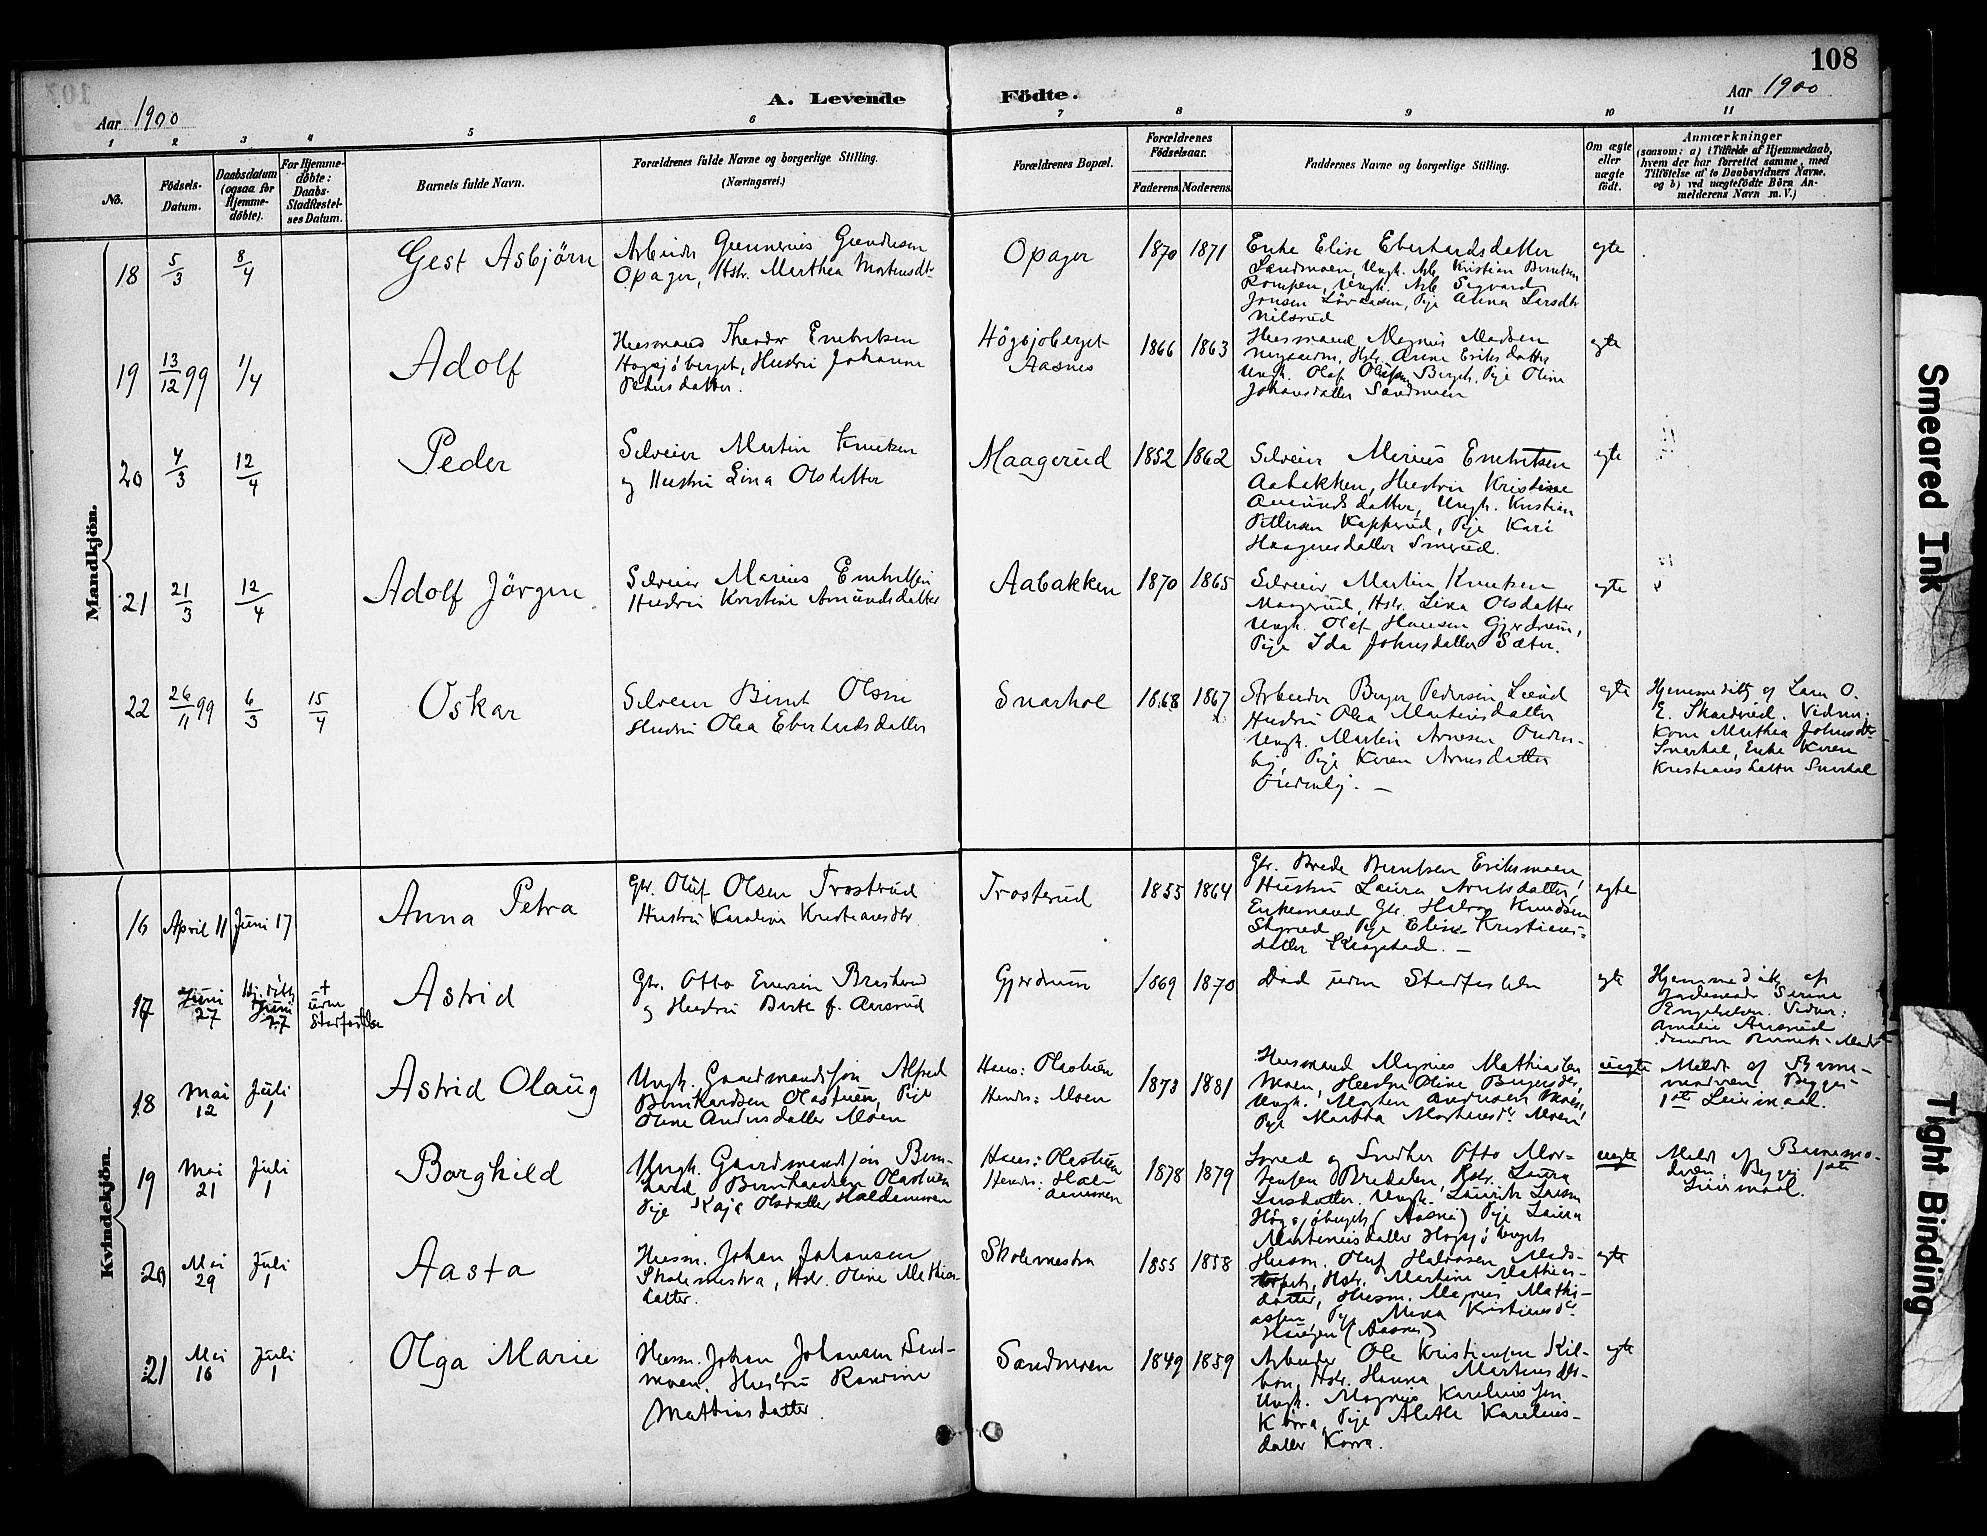 108
Aar 1900
A. Levende Födte.
Aar 1900
1 2 3 4 5 6 7 8 9 10 11
No.
Födsels-Datum.
Daabsdatum (ogsaa for Hjemme-döbte).
For Hjemme-döbte: Daabs-Stadfæstel-ses Datum.
Barnets fulde Navn.
Forældrenes fulde Navne og borgerlige Stilling. (Næringsvei.)
Forældrenes Bopæl.
Forældrenes Födselsaar.
Faderens. Moderens.
Faddernes Navne og borgerlige Stilling.
Om ægte eller uægte födt.
Anmærkninger
(saasom: a) i Tilfælde af Hjemmedaab, hvem der har forrettet samme, med Tilföielse af to Daabsvidners Navne, og b) ved uægtefödte Börn An-melderens Navn m. V.)
Mandkjön.
18 5/3 8/4 Gest Asbjörn
Opager, Hstr. Marthea Mortensdtr
Opager 1870 1871
Enke Elise Eberhardsdatter
Sandmoen, Ungk. Arb. Kristian Berntsen
Rompen, Ungk. Arb. Sigvard
Jonsen Lövaasen, Pige Anna Larsdtr
Nilsrud
egte
19 13/12 99 1/4 Adolf
Husmand Theodor Embretsen
Högsjöberget, Hustru Johanne
Pedersdatter.
Högsjoberget
Aasnes
1866 1863
Husmand Magnus Madsen
Hstr. Anne Eriksdatter
Ungk. Olaf Olafsen Bergh. Pige Oline
Johansdatter Sandmoen
egte
20 4/3 12/4 Peder
Selveier Martin Knutsen
og Hustru Lina Olsdatter
Maagerud 1852 1862
Selveier Marius Embretsen
Aabakken, Hustru Kristine
Amundsdatter, Ungk. Kristian
Pettersen Kapperud, Pige Kari
Haagensdatter Smerud.
egte
21 21/3 12/4 Adolf Jörgen
Selveier Marius Embretsen
Hustru Kristine Amundsdatter
Aabakken 1870 1865
Selveier Martin Knutsen
Maagerud, Hstr. Lina Olsdatter
Ungk. Olaf Hansen Gjerdrum,
Pige Ida Johnsdatter Sæter.
egte
22 26/11 99 6/3 15/4 Oskar
Selveier Bernt Olsen
Hustru Olea Eberhardsdatter
Snarhol 1868 1867
Arbeider Birger Pedersen Lund
Hustru Olea Martinsdatter
Ungk. Martin Arnesen Ouden-
by, Pige Karen Arnesdatter
Oudenby. —
egte
Hjemmedöbt af Lars O.
E. Skardrud. Vidner:
Kone Mathea Johnsdtr
Snarhol, Enke Karen
Kristiansdatter Snarhol
Kvindekjön.
16 April 11 Juni 17 Anna Petra
Gbr. Oluf Olsen Trosterud
Hustru Karoline Kristiansdtr
Trosterud 1855 1864
Gbr. Brede Berntsen Eriksmoen,
Hustru Laura Arntsdatter,
Enkemand Gbr. Halvor Knudsen
Pige Elise Kristians-
datter Skogstad. —
egte
17 Juni 27 Hj.döbt Juni 27
† uden Stadfæstelse
Astrid
Gbr. Otto Enersen Brusterud
og Hustru Berte f. Aursrud
Gjerdrum 1869 1870
Död uden Stadfæstelse
egte
Hjemmedöbt af
Jordemoder Serine
Engebretsen. Vidner:
Amalie Aursrud
18 Mai 12 Juli 1 Astrid Olaug
Ungk. Gaardmandssön Alfred
Bernhardsen Olastuen, Pige
Oline Andersdatter Moen
Hans: Olastuen
Hendes: Moen
1873 1881
Husmand Magnus Mathiassen
Moen, Hustru Oline Birgersdtr,
Ungk. Morten Andersen Moen,
Pige Martha Mortensdtr Moen
uegte
Meldt af Barne-
moderen. Begges
1ste Leiermaal.
19 Mai 21 Juli 1 Borghild
Ungk. Gaardmandssön Bern-
hard Bernhardsen Olastuen
Pige Kaja Olsdatter Haldammen
Hans: Olastuen
Hendes: Hal-
dammen
1878 1879
Smed og Snedker Otto Mor-
tensen Bredalen, Hstr. Laura
Larsdatter. Ungk. Laurits Larsen
Högsjöberget (Aasnes) Pige Laura
Martiniusdatter Högsjöberget
uegte
Meldt af Barnemo-
deren. Begges 1ste
Leiermaal.
20 Mai 29 Juli 1 Aasta
Husm. Johan Johansen
Skolemestra, Hstr. Oline Mathias-
datter.
Skolemestra 1855 1858
Husm. Oluf Halvorsen Mads-
torpet, Hstr. Martine Mathias-
datter, Husm. Magnus Mathi-
assen, Pige Mina Kristiansdtr
Haugen (Aasnes)
egte
21 Mai 16 Juli 1 Olga Marie
Husm. Johan Johansen Sand-
moen. Hustru Randine
Mathiasdatter.
Sandmoen 1849 1859
Arbeider Ole Kristiansen Kil-
bon, Hstr. Hanna Martinsdtr.
Ungk. Magnus Kareliussen
Korra, Pige Alethe Karelius-
datter Korra.
egte
Smeared Ink
Tight Binding